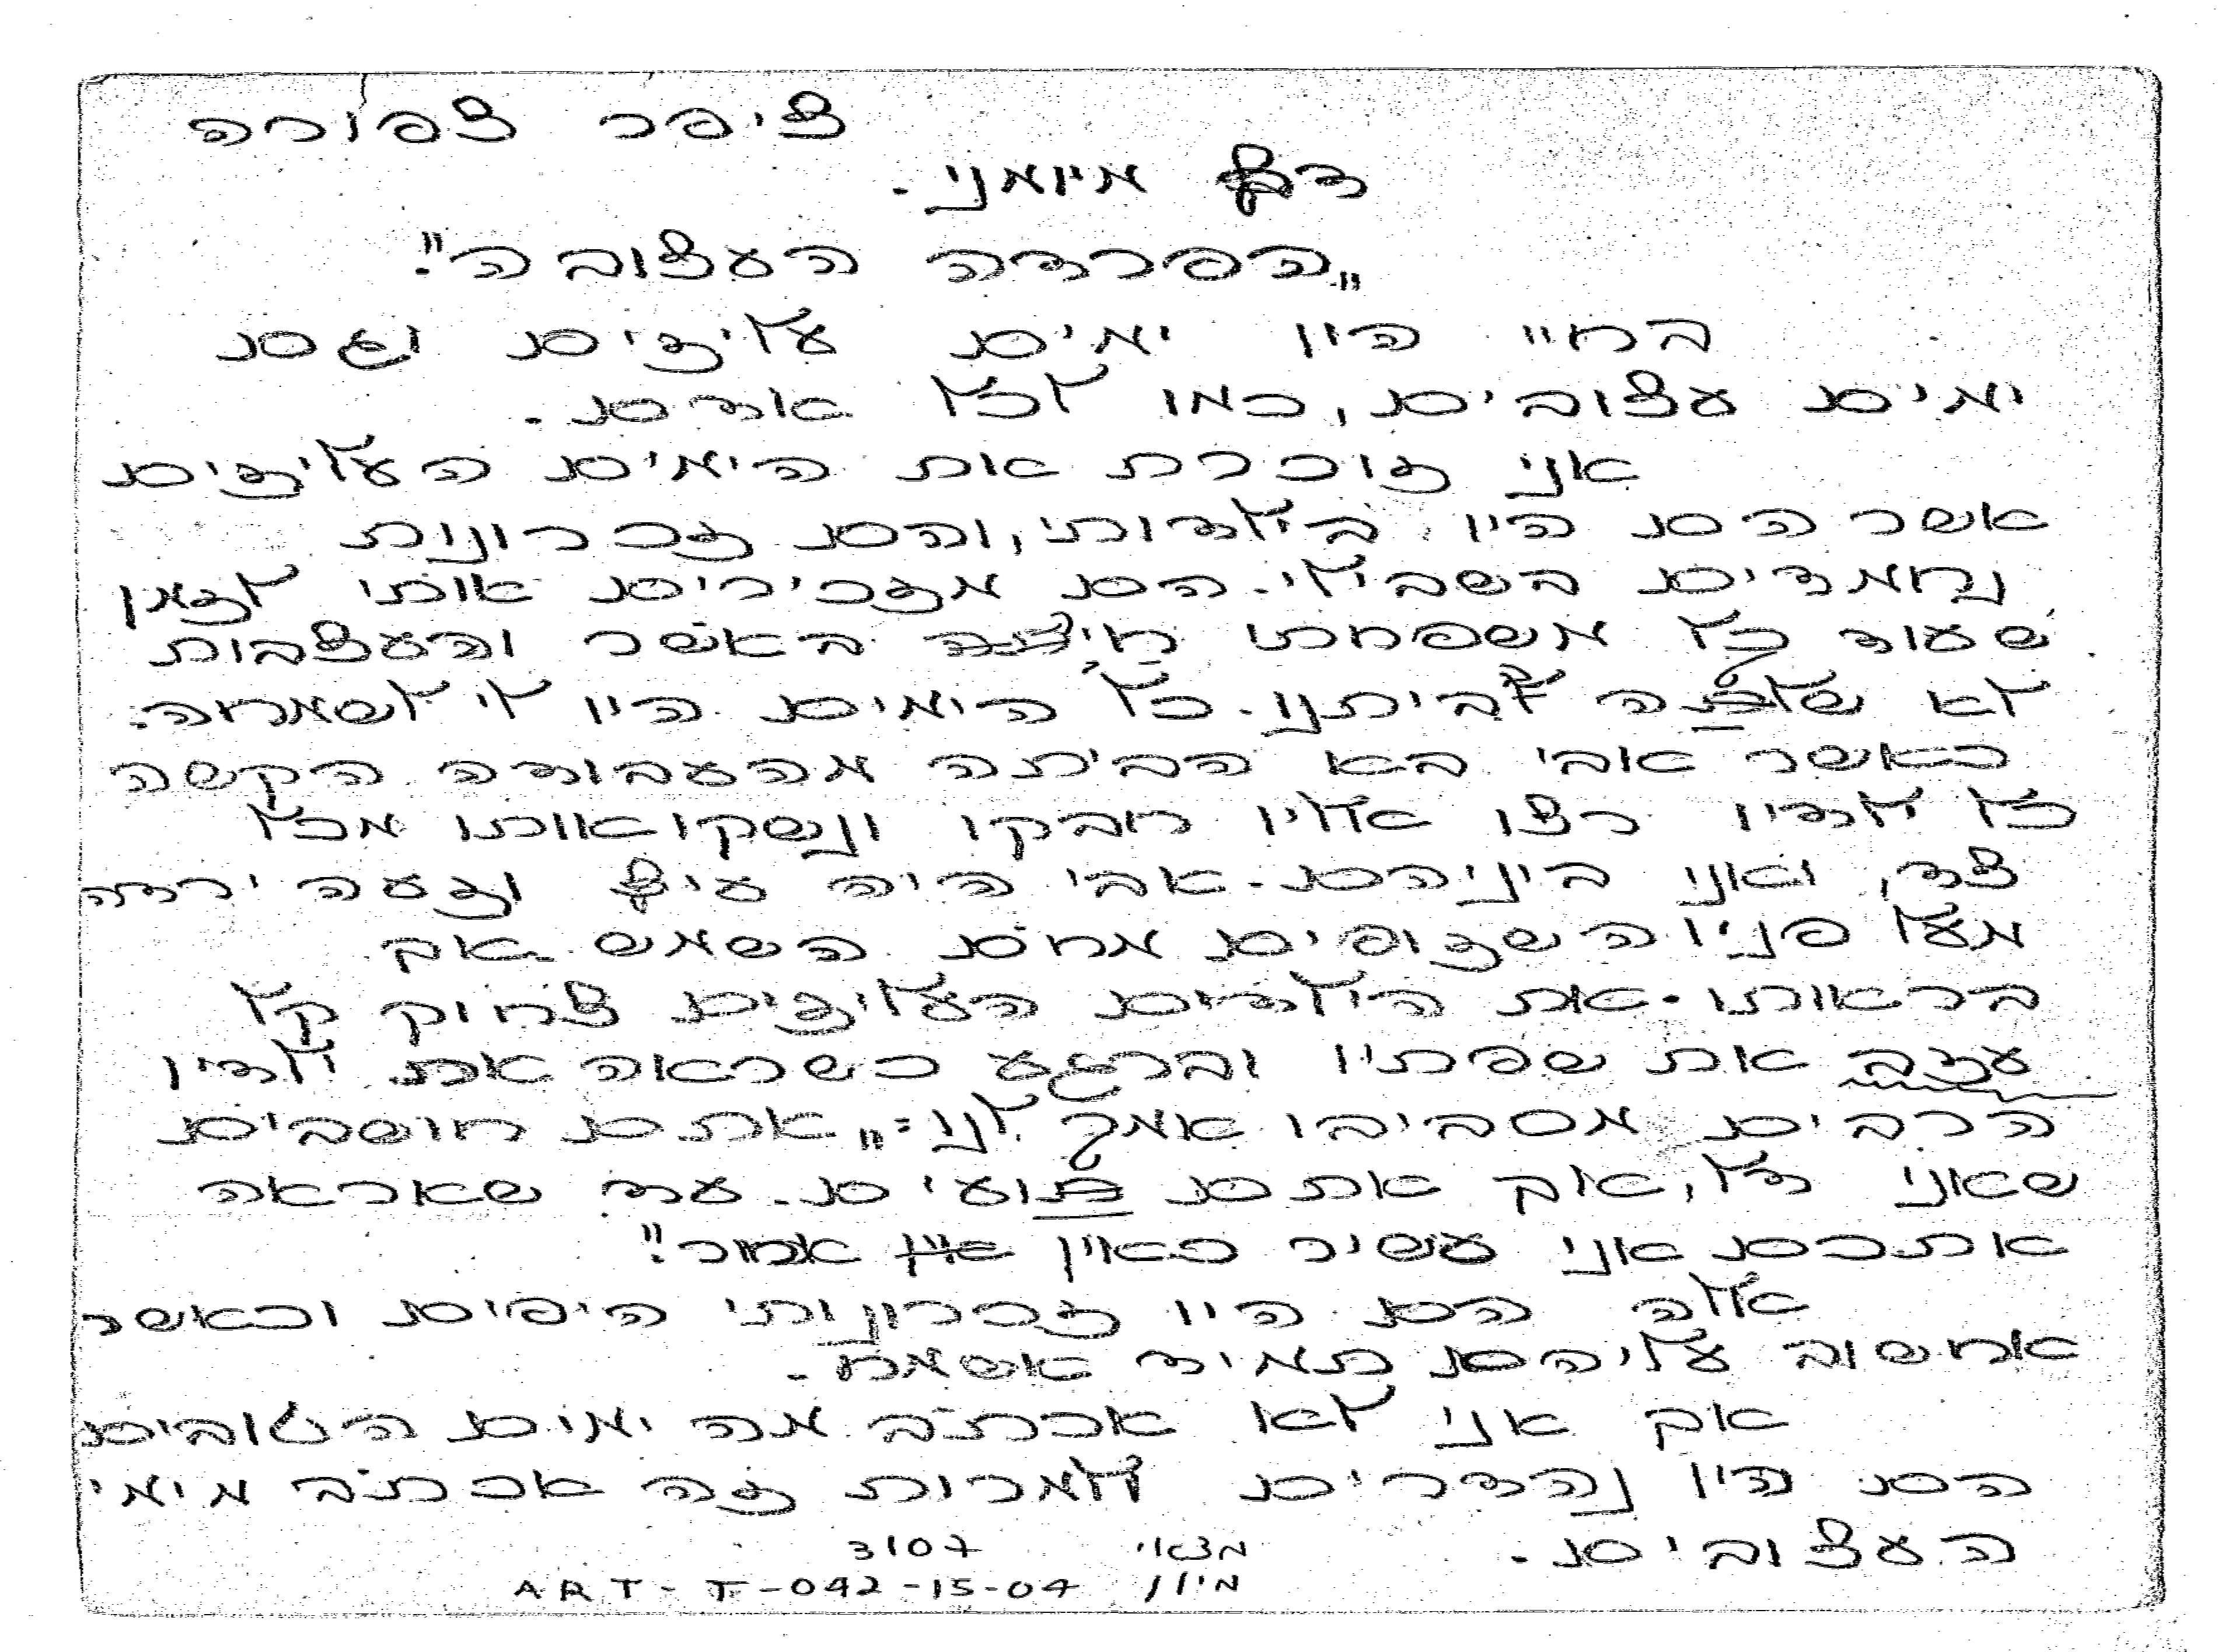 ציפר צפורה
דף מיומני.
„הפרדה העצובה".
בחיי היו ימים עליזים וגם
ימים עצובים, כמו לכל אדם.
אני זוכרת את הימים העליזים
אשר הם היו בילדותי, והם זכרונות
נחמדים בשבילי. הם מזכירים אותי לזמן
שעוד כל משפחתי חיה באשר והעצבות
לא שלטה לביתנו. כל הימים היו לי לשמחה.
כאשר אבי בא הביתה מהעבודה הקשה
כל ילדיו רצו אליו חבקו ונשקו אותו מכל
צד, ואני ביניהם. אבי היה עיף וזעה ירדה
מעל פניו השזופים מחם השמש. אך
בראותו את הילדים העליזים צחוק קל
עזב את שפתיו וברגע כשראה את ילדיו
הרבים מסביבו אמר לנו: „אתם חושבים
שאני דל, אך אתם טועים. עד שאראה
אתכם אני עשיר כאין אחר".
אלה הם היו זכרונותי היפים וכאשר
אחשוב עליהם תמיד אשמח.
אך אני לא אכתב מה ימים הטובים
הם היו נהדרים למרות זה אכתב מימי
העצובים.
מצאי 3107
מיון ART-T-042-15-04